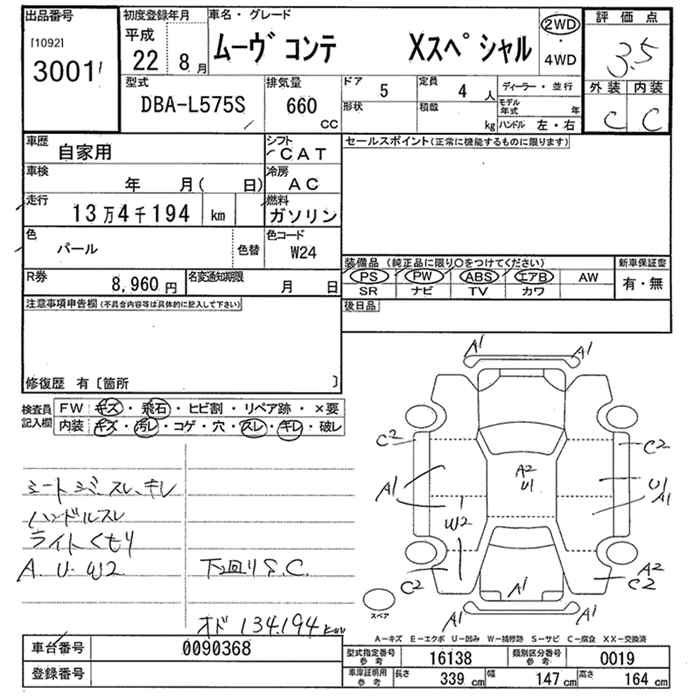 出品番号
[1092]
3001
初度登録年月
平成
22年 8月
車名・グレード
ムーヴ コンテ Xスペシャル
2WD
・
4WD
評価点
3.5
外装 内装
C C
型式
DBA-L575S
排気量
660
CC
ドア 5
定員 4 人
形状
積載
kg
ディーラー・並行
モデル年式 年
ハンドル 左・右
車歴
自家用
シフト
CAT
セールスポイント(正常に機能するものに限ります)
車検
年 月( 日)
冷房
AC
走行
13万4千194 km
燃料
ガソリン
色
パール
色替
色コード
W24
装備品 (純正品に限り○をつけてください)
新車保証書
PS PW ABS エアB AW
有・無
SR ナビ TV カワ
R券
8,960 円
名変通知期限
月 日
後日品
注意事項申告欄(不具合内容等は具体的に記入して下さい)
修復歴 有〔箇所 〕
検査員
記入欄
FW キズ・飛石・ヒビ割・リペア跡・×要
内装 キズ・汚レ・コゲ・穴・スレ・キレ・破レ
シートシミ、スレ、キレ
ハンドルスレ
ライトくもり
A.U.W2
下廻りS.C.
オド 134,194 km
A1
A1
C2
C2
A1
A2
U1
U1
A1
W2
C2
A1
A2
C2
A1
A1
スペア
A-キズ E-エクボ U-凹み W-補修跡 S-サビ C-腐食 XX-交換済
車台番号
0090368
登録番号
型式指定番号
参考
16138
類別区分番号
参考
0019
車庫証明用
参考
長さ 339 cm
幅 147 cm
高さ 164 cm